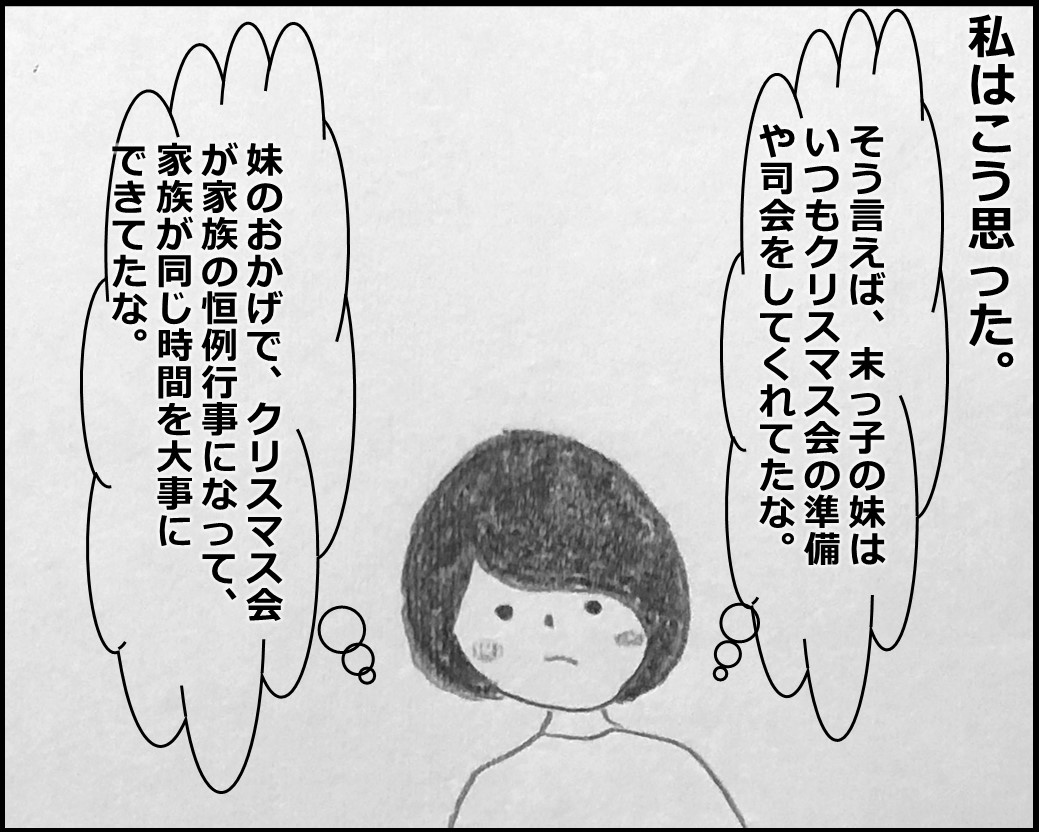 私はこう思った。
そう言えば、末っ子の妹は
いつもクリスマス会の準備
や司会をしてくれてたな。
妹のおかげで、クリスマス会
が家族の恒例行事になって、
家族が同じ時間を大事に
できてたな。